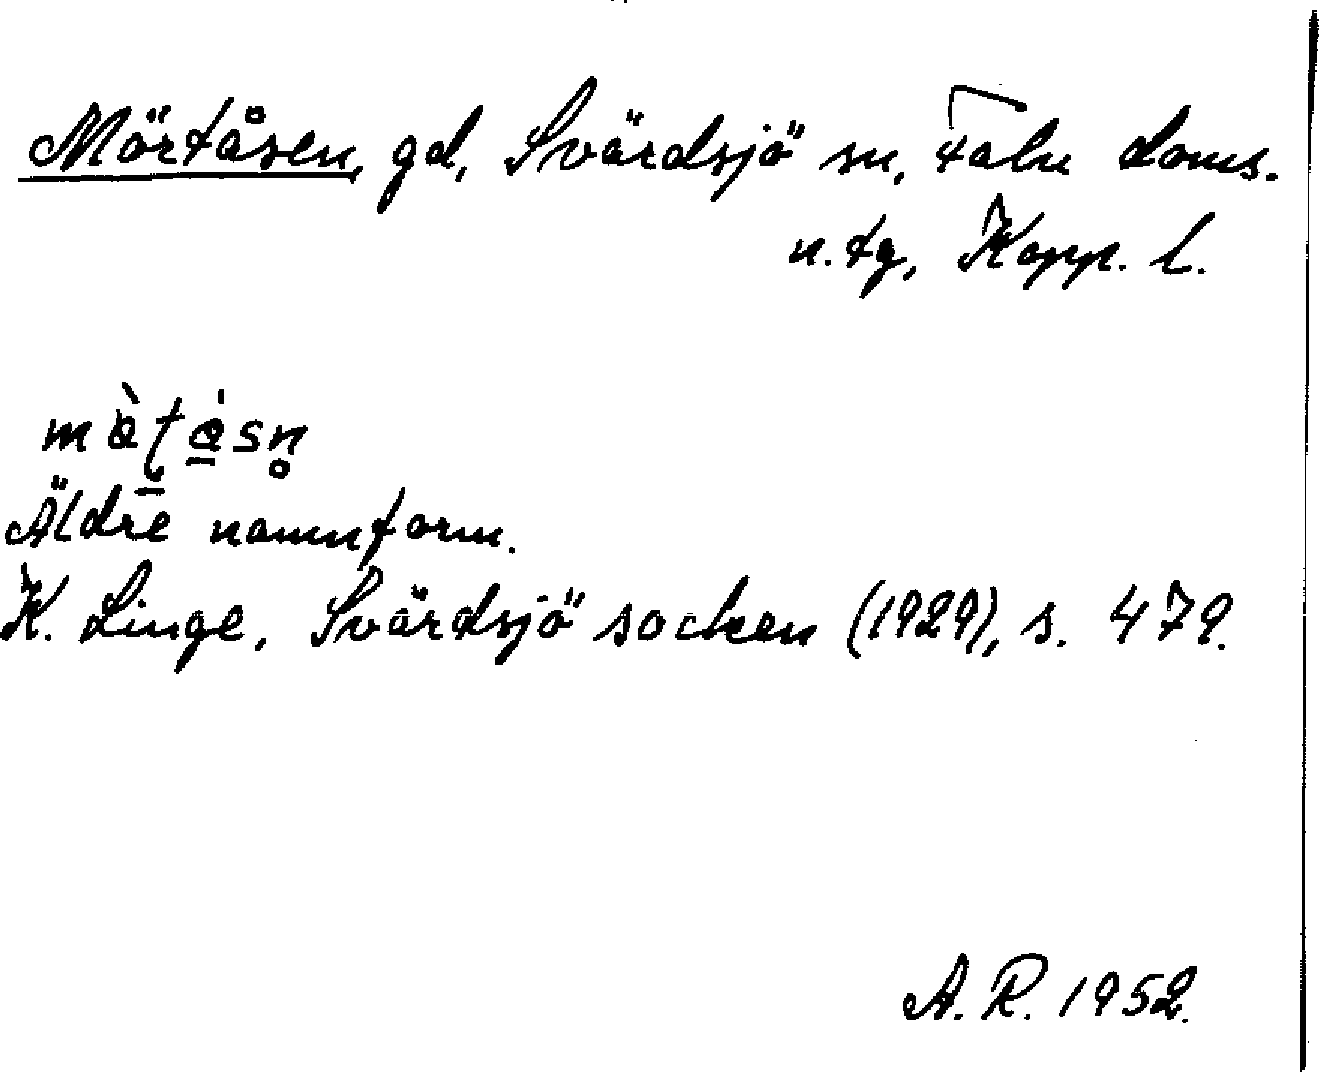 Mörtåsen, gd, Svärdsjö sn, Falu doms.
n. tg, Kopp. l.
Äldre namnform.
K. Linge, Svärdsjö socken (1929), s. 479.
A. R. 1952.